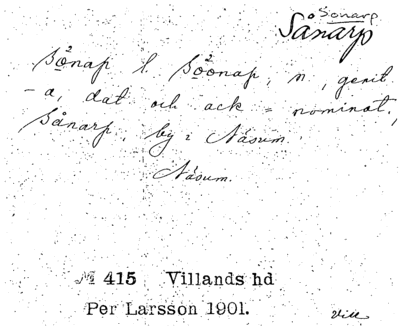 Sonarp
Sånarp
Sønap l. Søönap, n, genit
-a, dat och ack = nominat,
Sånarp, by i Näsum.
Näsum.
№ 415 Villands hd
Per Larsson 1901.
Vill